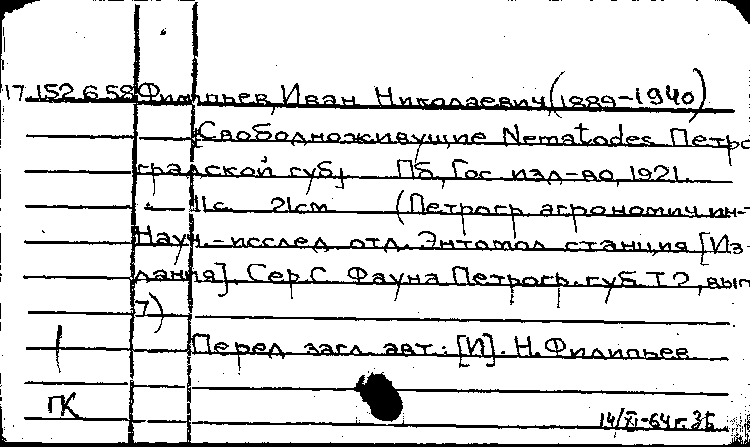 17.152.6.58 Филипьев, Иван Николаевич (1889-1940)
[Свободноживущие Nematodes Петро
градской губ.] Пб., Гос. изд-во, 1921.
11 с. 21 см (Петрогр. агрономич. ин-т
Науч.-исслед. отд. Энтомол. станция [Из
дания]. Сер. С. Фауна Петрогр. губ. Т. 2, вып
7)
Перед загл. авт.: [И]. Н. Филипьев
ГК
14/XI-64 г.